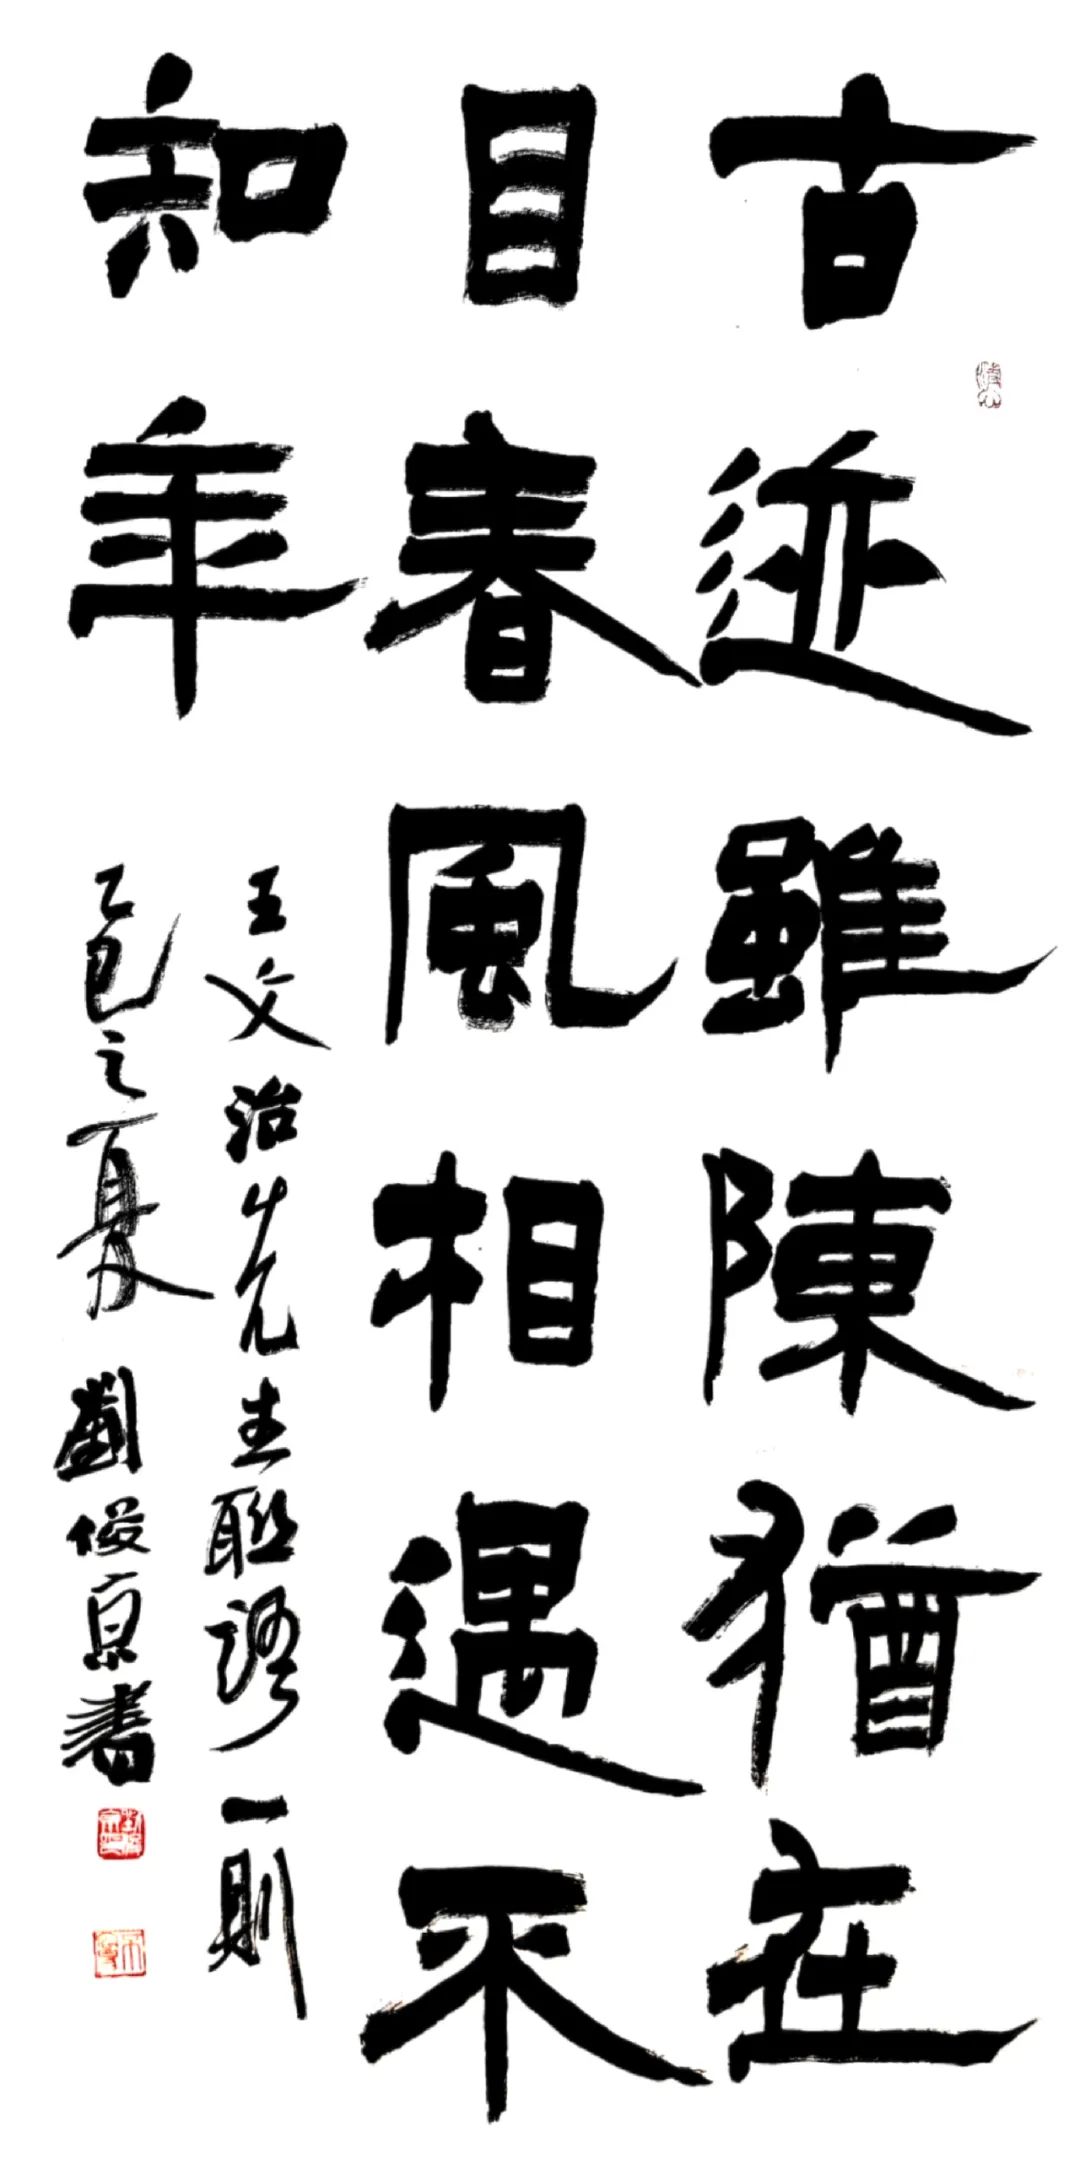 古迹雖陳猶在
目春風相遇不
知年
王文治先生聯語一則
乙巳之夏劉俊京書